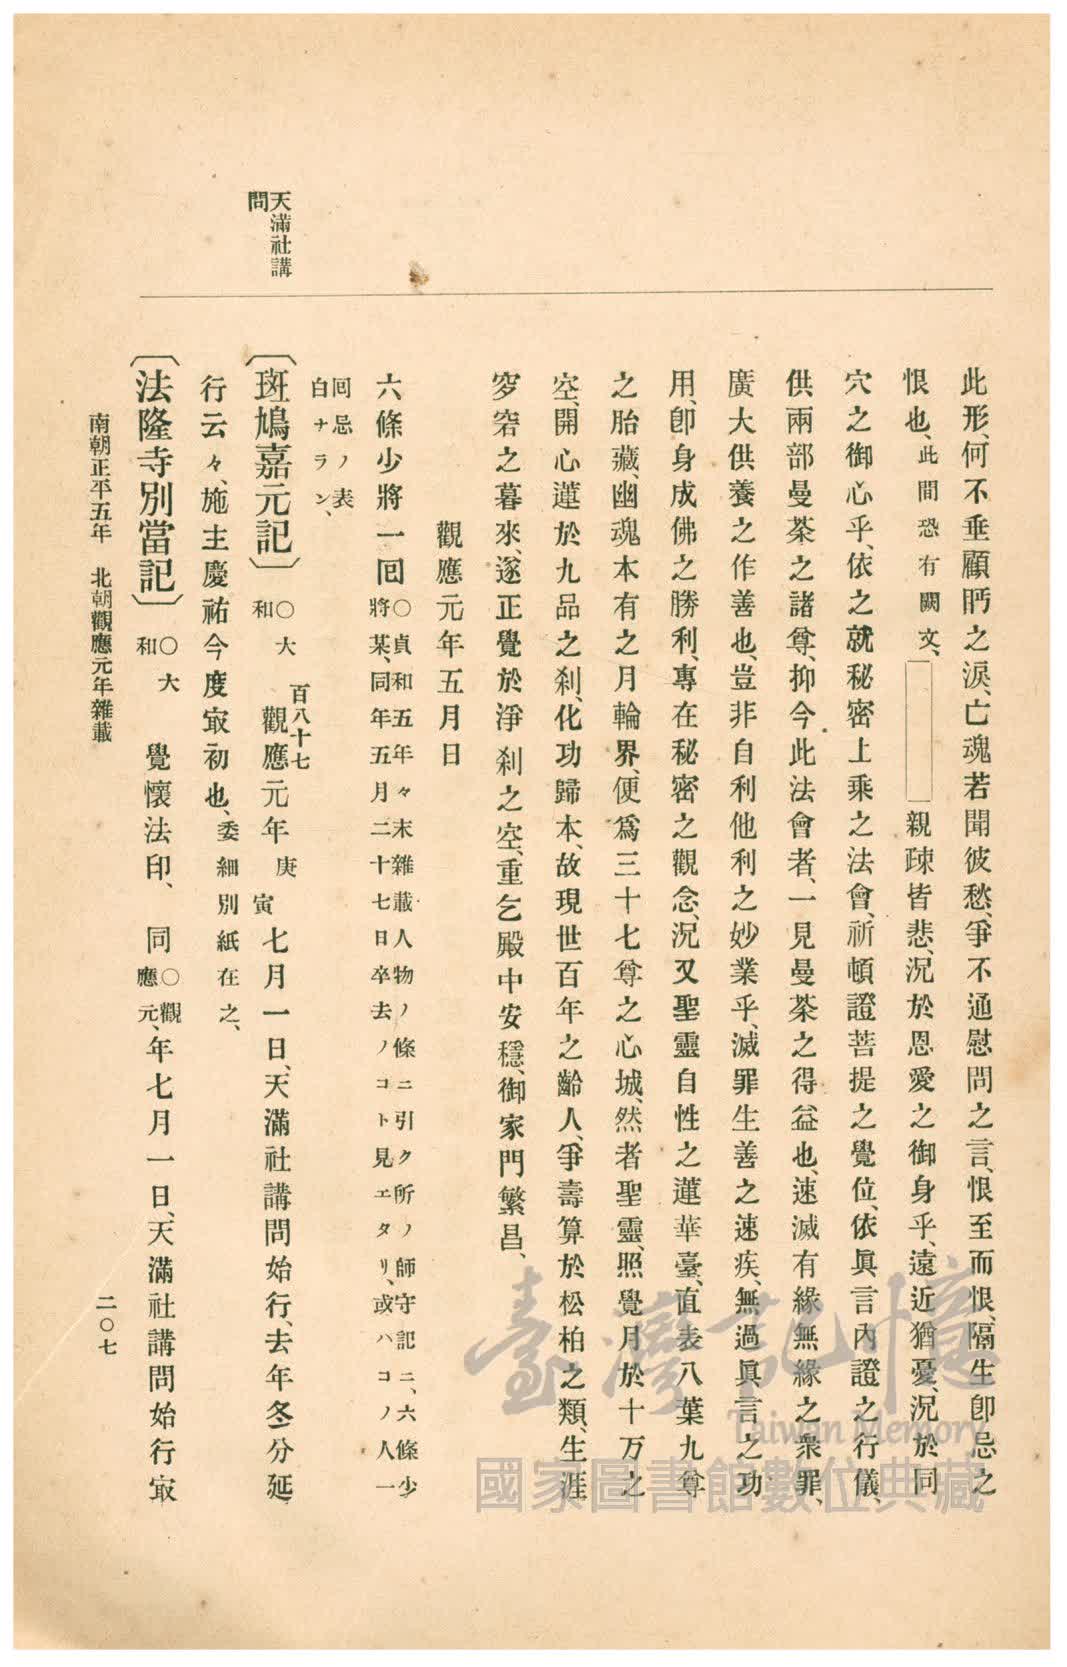 天滿社講
問
此形、何不垂顧眄之淚、亡魂若聞彼愁、爭不通慰問之言、恨至而恨、隔生卽忌之
恨也、此間恐有闕文、親疎皆悲、況於恩愛之御身乎、遠近猶憂、況於同
穴之御心乎、依之就秘密上乘之法會、祈頓證菩提之覺位、依眞言內證之行儀、
供兩部曼荼之諸尊、抑今此法會者、一見曼荼之得益也、速滅有緣無緣之衆罪、
廣大供養之作善也、豈非自利他利之妙業乎、滅罪生善之速疾、無過眞言之功
用、卽身成佛之勝利、專在秘密之觀念、況又聖靈自性之蓮華臺、直表八葉九尊
之胎藏、幽魂本有之月輪界、便爲三十七尊之心城、然者聖靈、照覺月於十万之
空、開心蓮於九品之刹、化功歸本、故現世百年之齡人、爭壽算於松柏之類、生涯
穸窀之暮來、遂正覺於淨刹之空、重乞殿中安穩、御家門繁昌、
觀應元年五月日
六條少將一回〇貞和五年々末雜載人物ノ條ニ引ク所ノ師守記ニ、六條少
將某、同年五月二十七日卒去ノコト見エタリ、或ハコノ人一
回忌ノ表
白ナラン、
〔斑鳩嘉元記〕〇大和 百八十七 觀應元年庚寅七月一日、天滿社講問始行、去年冬分延、
行云々、施主慶祐今度㝡初也、委細別紙在之、
〔法隆寺別當記〕〇大和 覺懷法印、同〇觀應元、年七月一日、天滿社講問始行㝡
南朝正平五年 北朝觀應元年雜載
二〇七
臺灣記憶
Taiwan Memory
國家圖書館數位典藏